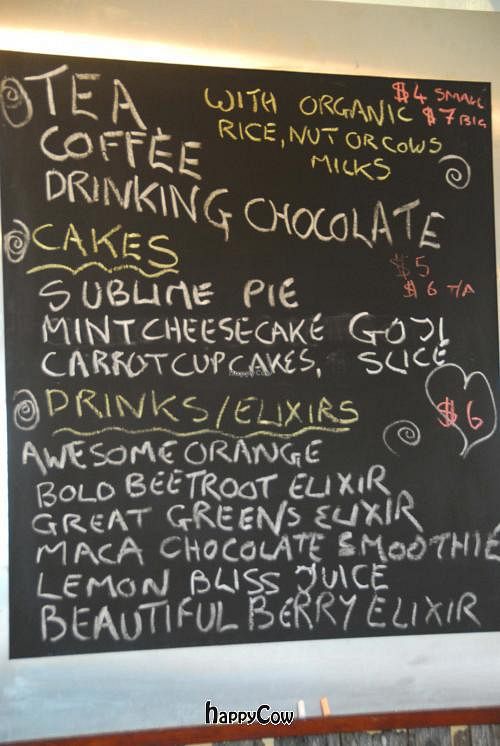 TEA
COFFEE
DRINKING CHOCOLATE
WITH ORGANIC
RICE, NUT OR COWS
MILKS
$4 SMALL
$7 BIG
CAKES
$5
$6 T/A
SUBLIME PIE
MINT CHEESECAKE GOJI
CARROT CUPCAKES, SLICE
DRINKS/ELIXIRS
$6
AWESOME ORANGE
BOLD BEETROOT ELIXIR
GREAT GREENS ELIXIR
MACA CHOCOLATE SMOOTHIE
LEMON BLISS JUICE
BEAUTIFUL BERRY ELIXIR
Happy Cow
HappyCow